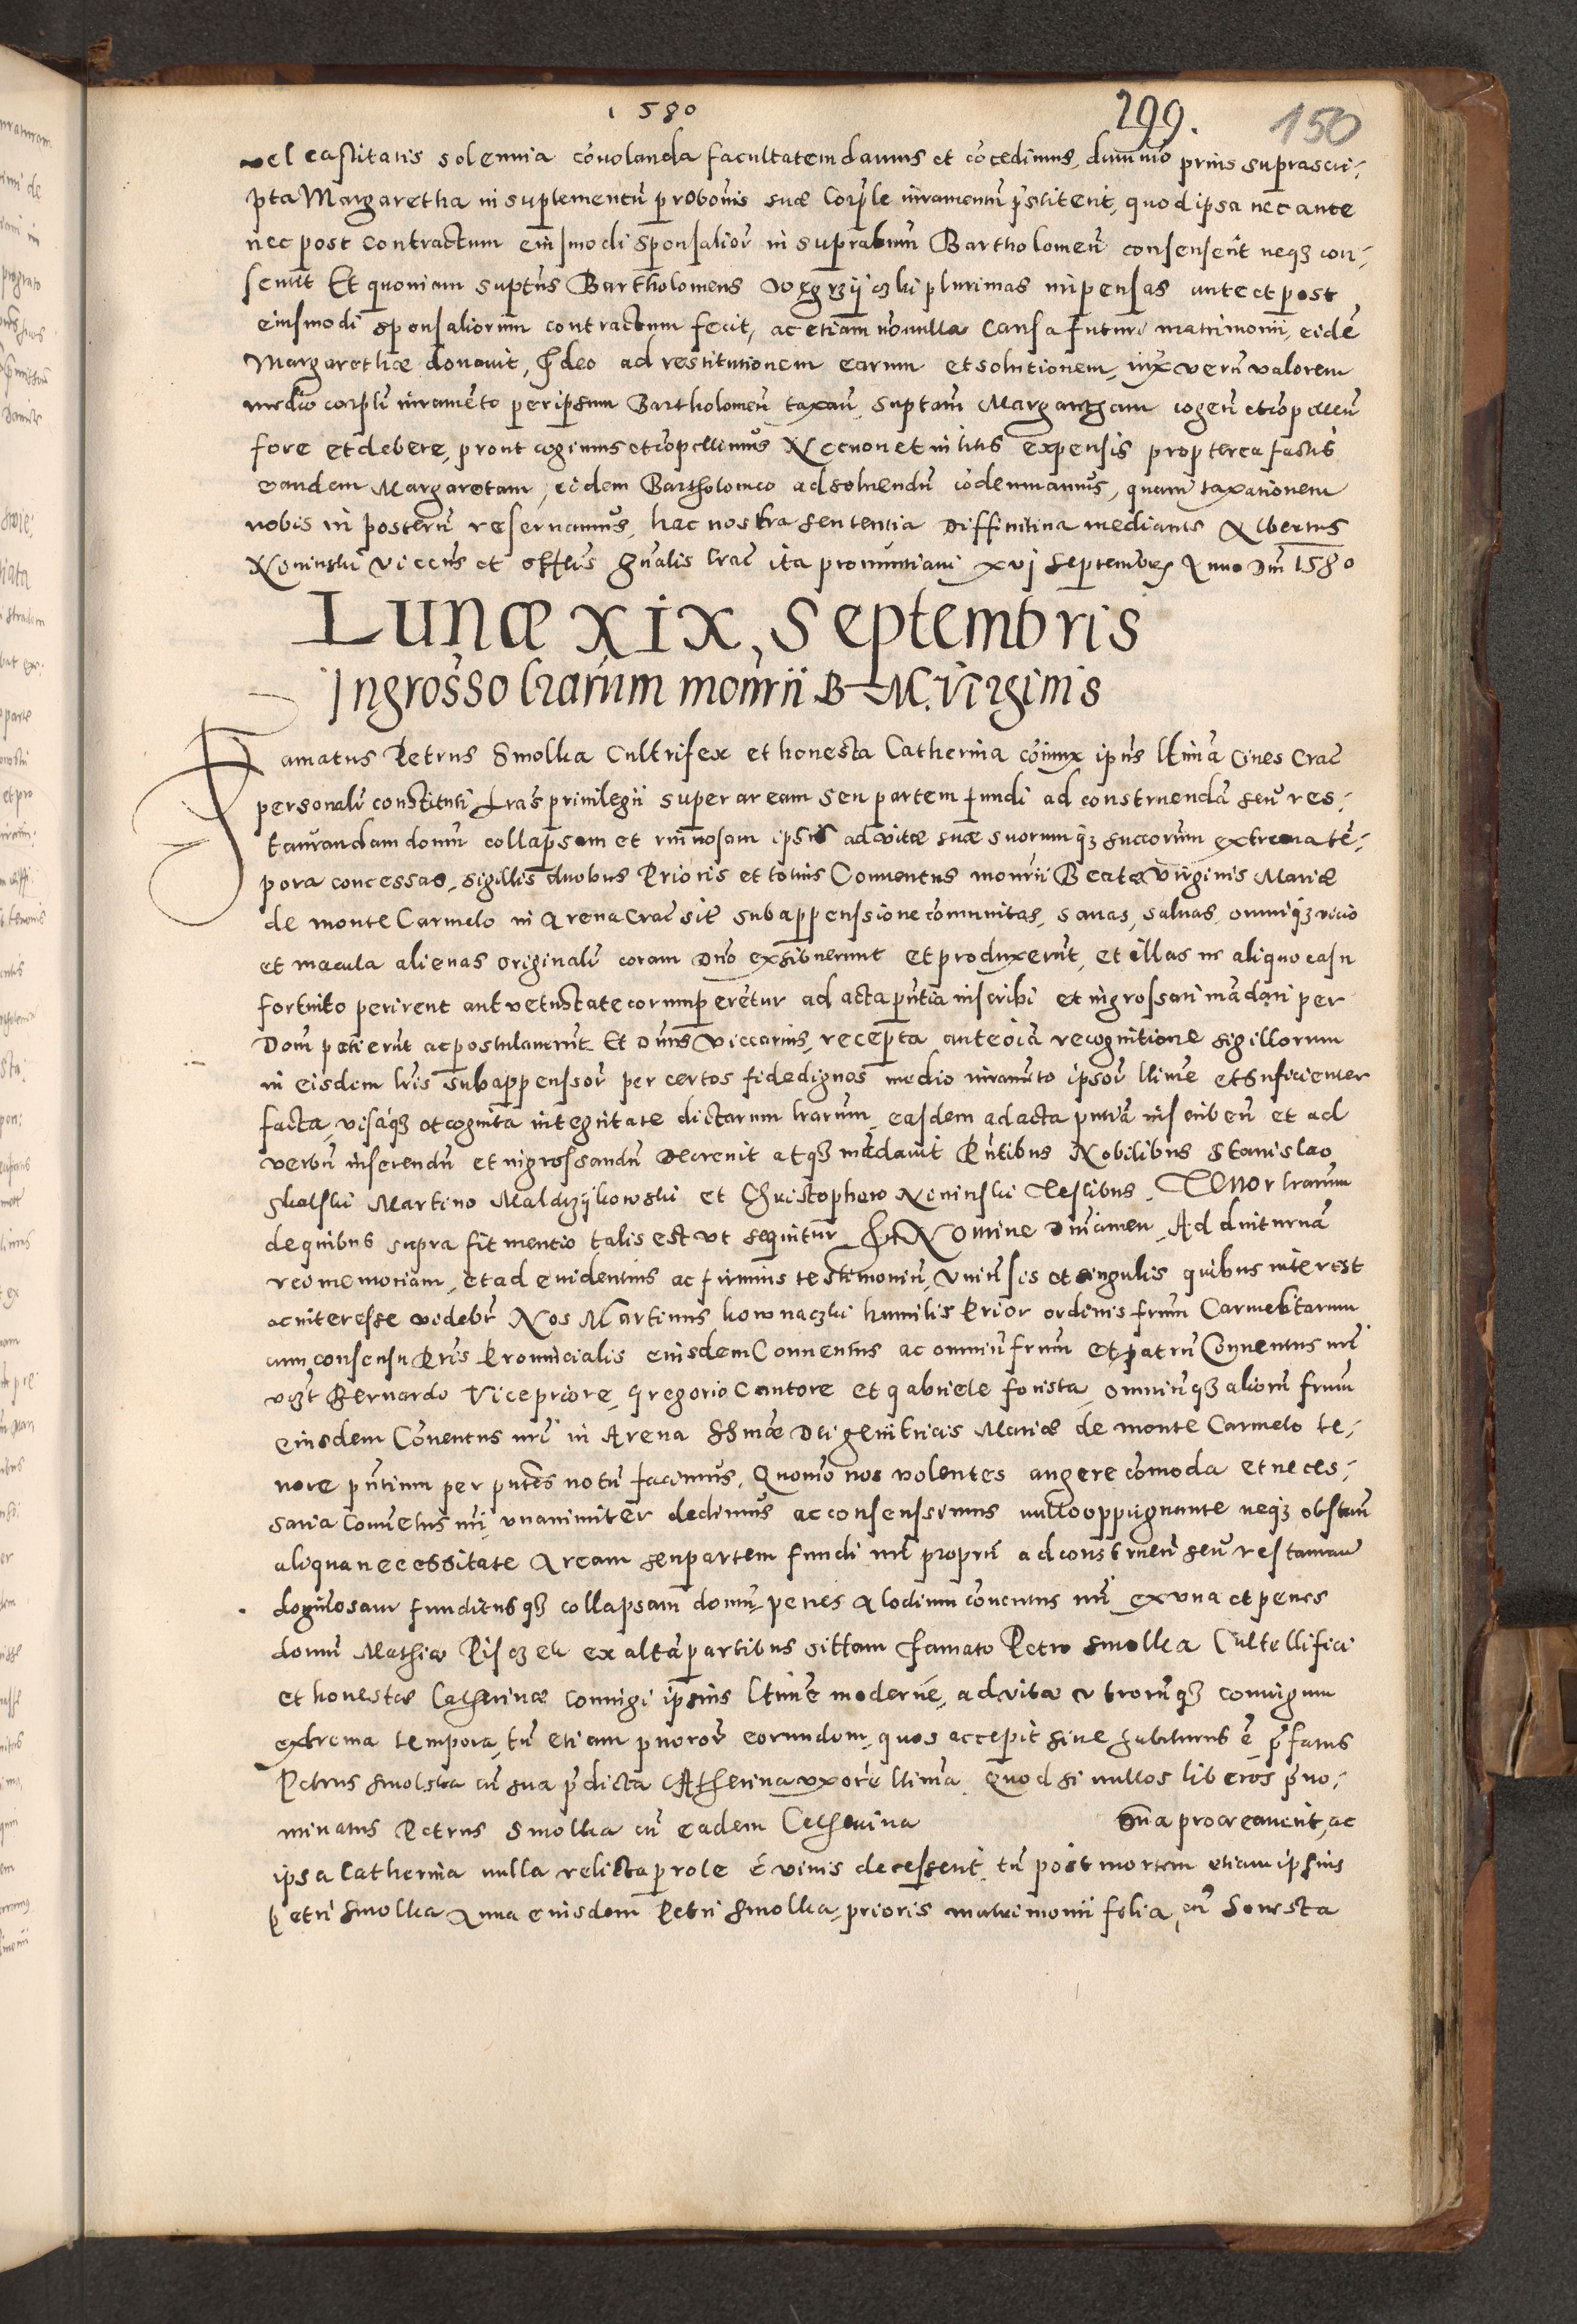 1580
299.
150
vel castitatis solennia cōvolanda facultatem damus et cōcedimus, dummō prius suprascri-
pta Margaretha in suplementū probōnis suæ corp̄le iuramentū p̄stiterit, quod ipsa nec ante
nec post contractum eiusmodi sponsalior̄ in Bartholomeū consenserit neq3 con-
senciit Et quoniam supt̄us Bartholomeus plurimas inpensas ante et post
eiusmodi sponsaliorum contractum fecit, ac etiam nōnulla causa futuri matrimonii, eidē
Margarethæ donavit, Ideo ad restitutionem earum et solutionem, iux̄ verū valorem
medio corp̄li iuramēto per ipsum Bartholomeū taxan̄ supt̄am Margaretham cogen̄ et cōpellen̄
fore et debere, prout cogimus et cōpellimus Necnon et in litis expensis propterea factis
eandem Margaretam, eidem Bartholomeo ad solvendū cōdemnamus, quam taxationem
nobis in posterū reservamus, hac nostra sententia diffinitiva mediante Albertus
Neninski vicen̄s et offlis gn̄alis Crac̄ ita pronuntiavi xvj Septembris Anno Dn̄i 1580
Lunæ XIX, Septembris
Ingrosso l̄rarum mon̄rii B. M. Virginis
Famatus Petrus Smolka Cultrifex et honesta Catherina cōiunx ip̄ius lt̄ima Cives Crac̄
personalr̄ constituti l̄ras privilegii super aream seu partem fundi ad construendā seu res-
taurandam domū collapsam et ruinosam ipsis ad vitæ suæ suorumq3 succorum extrema tē-
pora concessas, sigillis duobus Prioris et totius Conventus mon̄rii Beatæ Virginis Mariæ
de monte Carmelo in Arena Crac̄ sit̄ subappenssione cōmunitas, sanas, salvas, omniq3 vicio
et macula alienas originalr̄ coram Dn̄o exhibuerunt et produxerūt, et illas ne aliquo casu
fortuito perirent aut vetustate corrumperētur ad acta p̄ntia inscribi et ingrossari mādari per
Dom̄ petierūt ac postulaverūt Et Dn̄us Viccarius, recepta anteoīa recognitione sigillorum
in eisdem l̄ris subappenssor̄ per certos fidedignos medio iuramēto ipsor̄ ltime et sufficienter
facta, visaq3 et cognita integritate dictarum l̄rarum, easdem ad acta p̄ntia inscriben̄ et ad
verbū inserendū et ingrossandū decrevit atq3 mādavit P̄ntibus Nobilibus Stanislao
Skalski Martino Maldrzijkowski et Christophero Neninski Testibus. Tenor l̄rarum
de quibus supra fit mentio talis est ut sequitur In Nomine Dn̄i amen, Ad diuturnā
rei memoriam, et ad evidentius ac firmius testimoniū, Universis et singulis quibus interest
ac interesse videbr̄ Nos Martinus kownaczki humilis Prior ordinis fr̄um Carmelitarum
cum consensu Pr̄is Provincialis eiusdem Conventus ac omniū fr̄um et patrū Conventus nr̄i
vz̄t Bernardo Vicepriore, Gregorio Cantore et Gabriele omniūq3 aliorū fr̄um
eiusdem Cōventus nr̄i in Arena Ss̄mæ Dei genitricis Mariæ de monte Carmelo te-
nore p̄ntium per p̄ntes notū facimus, Quom̄o nos volentes augere cōmoda et neces-
saria Conventus nr̄i, unanimiter dedimus ac consenssimus nullo oppugnante neq3 obstan̄
aliqua necessitate Aream seu partem fundi nr̄i proprii ad construen̄ seu restauran̄
funditusq3 collapsam domū, penes Alodium conventus nr̄i ex una et penes
domū Mathiæ ex altā partibus sittam famato Petro Smolka Cultellifici
et honestæ Catherinæ coniugi ipsius lt̄imæ modernæ, ad vitæ utrorūq3 coniugum
extrema tempora, tū etiam pueror̄ eorundem, quos accepit sive habiturus ē p̄fatus
Petrus Smolska cū sua p̄dicta Catherina uxore lt̄ima. Quod si nullos liberos p̄no-
minatus Petrus Smolka cū eadem Catherina sua procreaverit, ac
ipsa Catherina nulla relicta prole é vivis decesserit, tū post mortem etiam ipsius
Petri Smolka Anna eiusdem Petri Smolka, prioris matrimonii filia, cū honesta